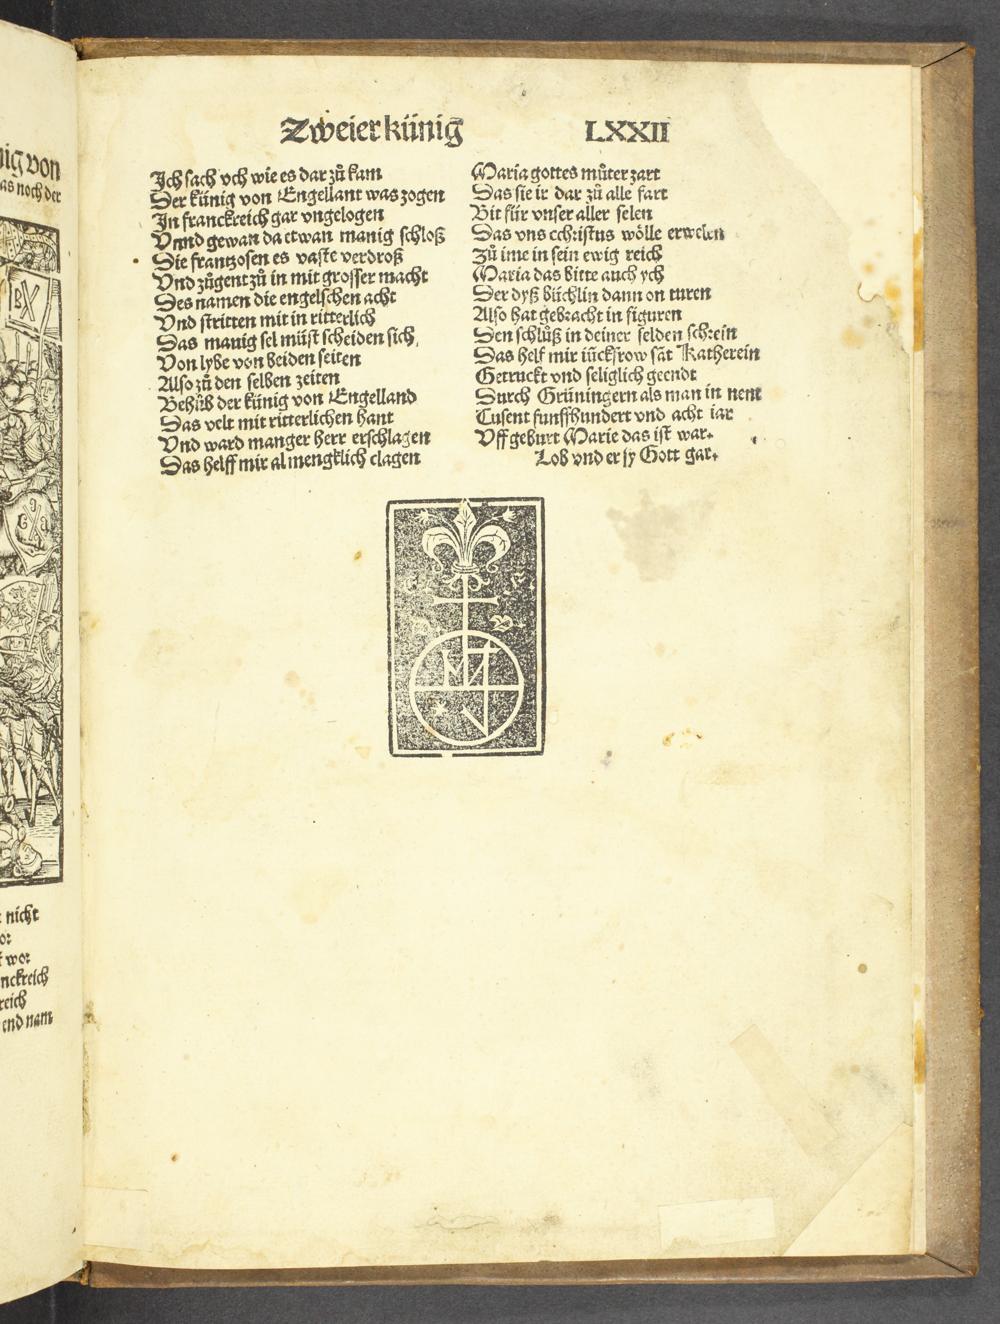 nig von
as noch der
nicht
wor
nckreich
reich
end nam
Zweier künig LXXII
Ich sach vch wie es dar zů kam
Der künig von Engellant was zogen
In franckreich gar vngelogen
Vnnd gewan da etwan manig schloß
Die frantzosen es vaste verdroß
Vnd zůgent zů in mit grosser macht
Des namen die engelschen acht
Vnd stritten mit in ritterlich
Das manig sel můst scheiden sich,
Von lybe von beiden seiten
Also zů den selben zeiten
Behůb der künig von Engelland
Das velt mit ritterlichen hant
Vnd ward manger herr erschlagen
Das helff mir al mengklich clagen
Maria gottes můter zart
Das sie ir dar zů alle fart
Bit für vnser aller selen
Das vns cchristus wölle erwelen
Zů ime in sein ewig reich
Maria das bitte auch ych
Der dyß büchlin dann on turen
Also hat gebracht in figuren
Den schlůß in deiner selden schrein
Das helf mir iückfrow sāt Katherein
Getruckt vnd seliglich geendt
Durch Grüningern als man in nent
Tusent funffhundert vnd acht iar
Vff geburt Marie das ist war.
Lob vnd er sy Gott gar.